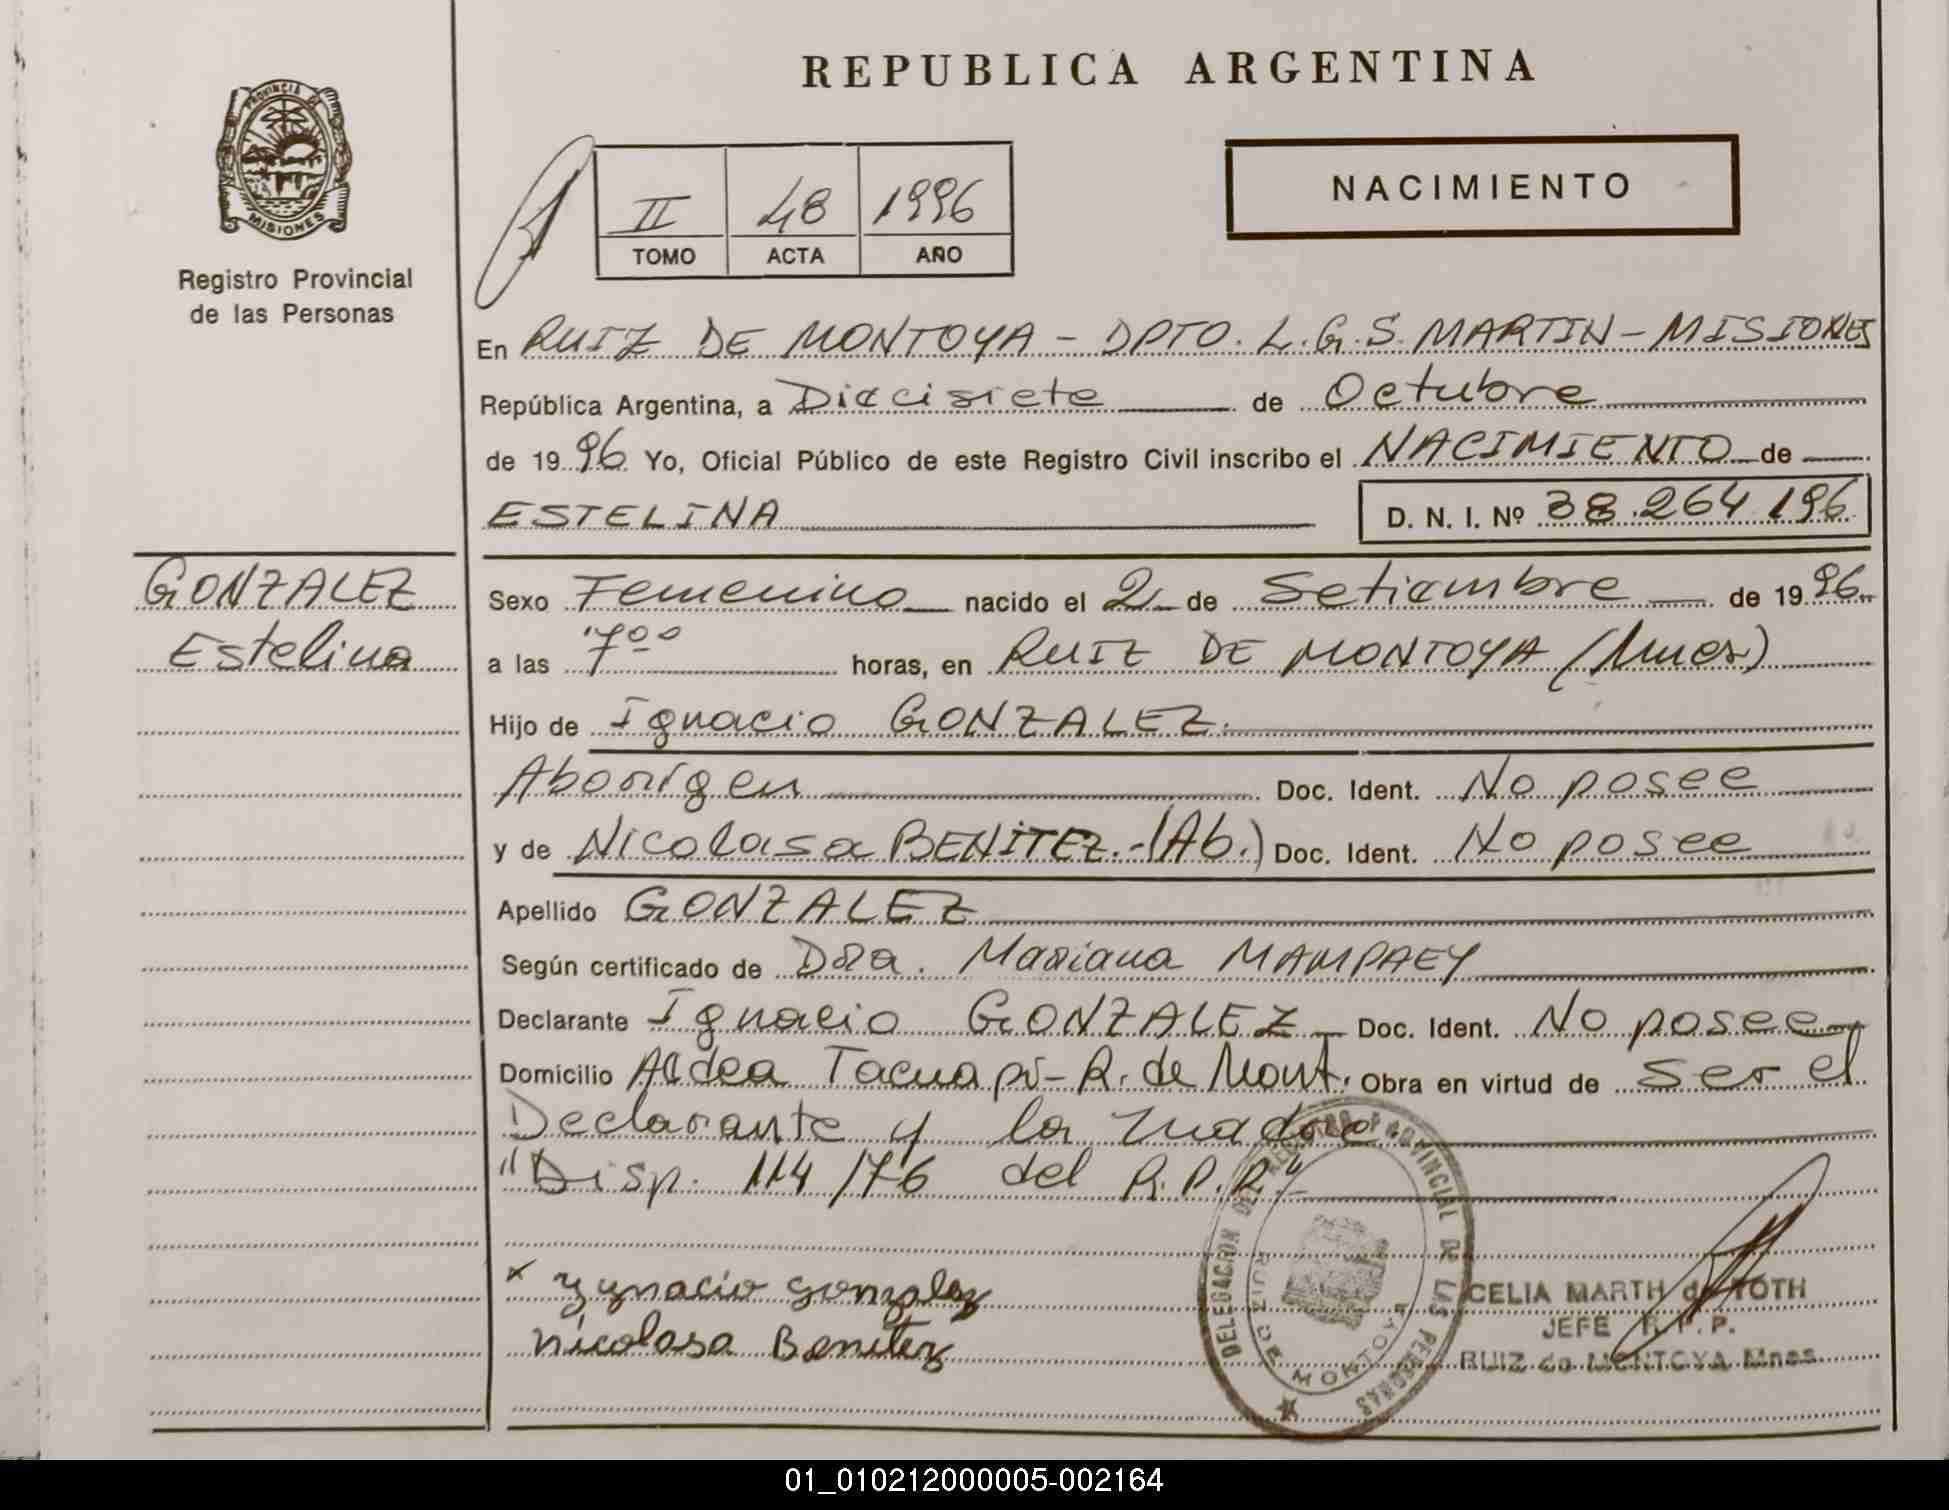 REPUBLICA ARGENTINA
PROVINCIA DE
MISIONES
Registro Provincial
de las Personas
II 48 1996
TOMO ACTA AÑO
NACIMIENTO
En RUIZ DE MONTOYA - DPTO. L.G.S. MARTIN - MISIONES
República Argentina, a Diecisiete de Octubre
de 1996 Yo, Oficial Público de este Registro Civil inscribo el NACIMIENTO de
ESTELINA D. N. I. Nº 38.264.196
GONZALEZ
Estelina
Sexo Femenino nacido el 2 de Setiembre de 1996
a las 7⁰⁰ horas, en RUIZ DE MONTOYA (Mnes)
Hijo de Ignacio GONZALEZ.
Aborígen Doc. Ident. No posee
y de Nicolasa BENITEZ.-(Ab.) Doc. Ident. No posee
Apellido GONZALEZ
Según certificado de Dra. Mariana MAMPAEY
Declarante Ignacio GONZALEZ Doc. Ident. No posee
Domicilio Aldea Tacuapí - R. de Mont. Obra en virtud de ser el
Declarante y la madre.
"Disp. 114/76 del R.P.P."
x Ygnacio gonzalez
nicolasa Benitez
DELEGACION DEL REGISTRO PROVINCIAL DE LAS PERSONAS
RUIZ DE MONTOYA
CELIA MARTH de TOTH
JEFE R.P.P.
RUIZ de MONTOYA Mnes.
01_010212000005-002164